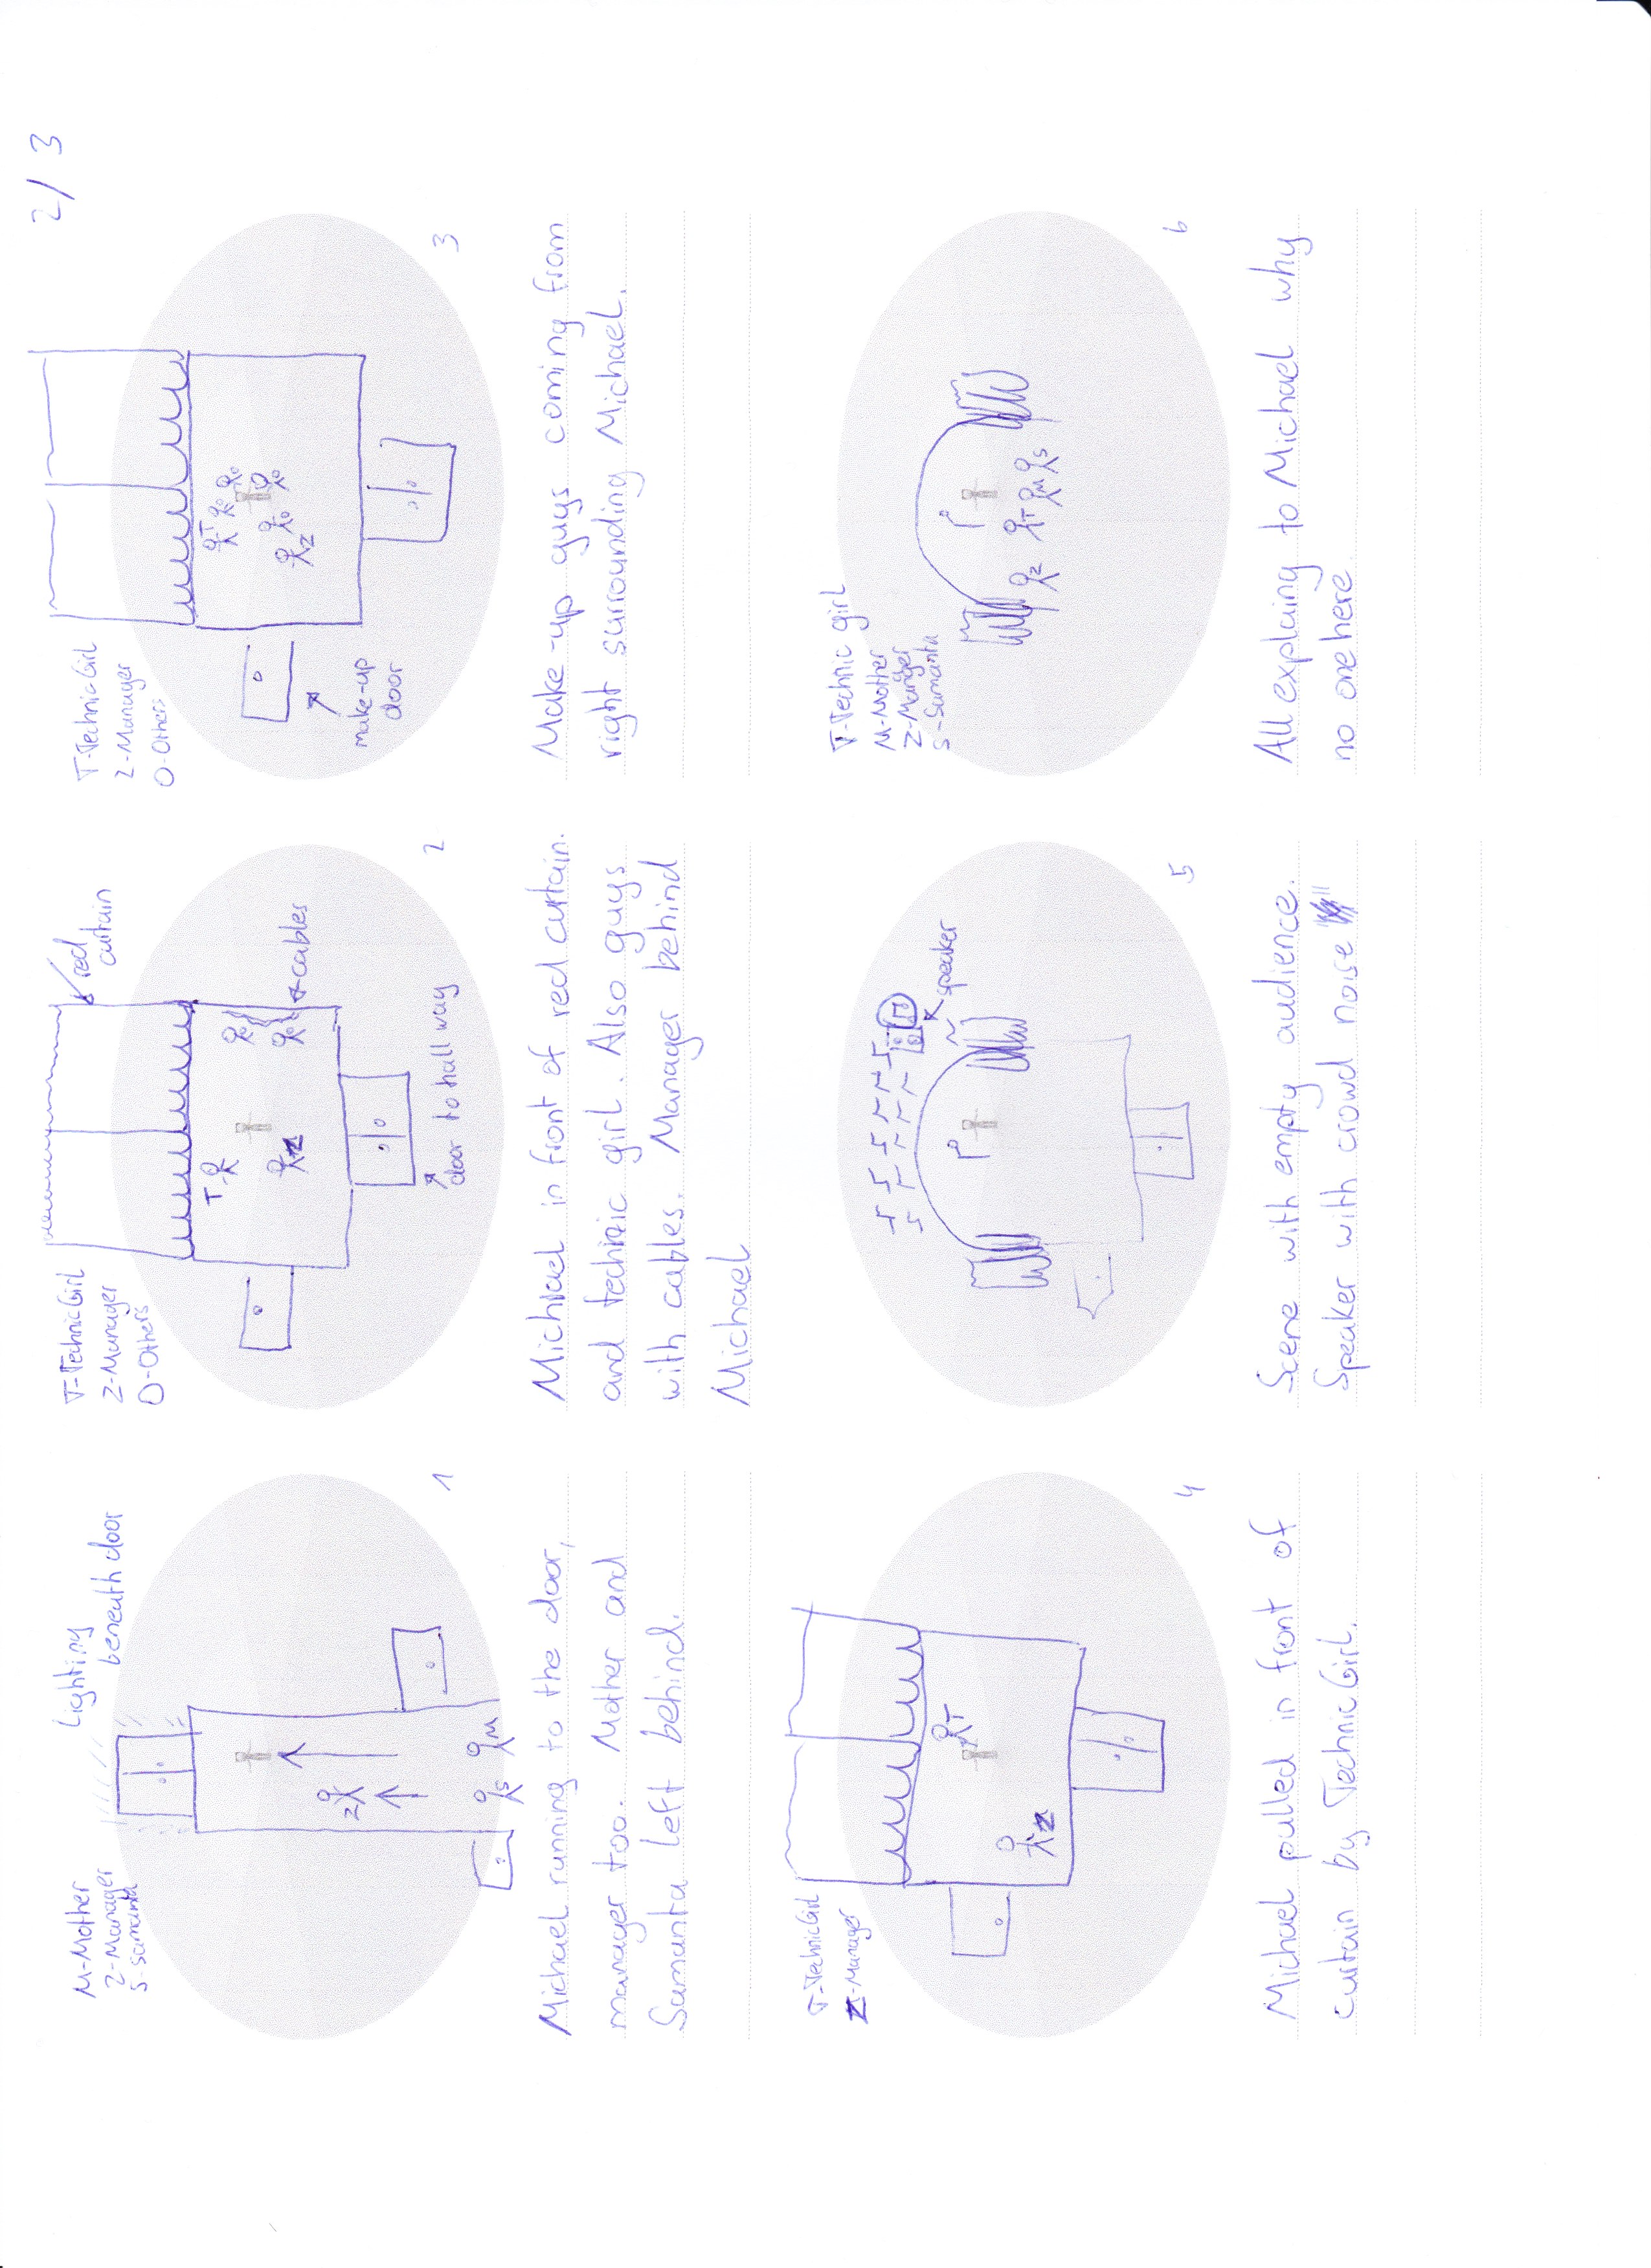 2/3
M-Mother
Z-Manager
S-Samanta
Lighting
beneath door
1
Michael running to the door,
manager too. Mother and
Samanta left behind.
Z
S
M
T-TechnicGirl
Z-Manager
O-Others
red
curtain
T
Z
O
O
cables
door to hall way
2
Michael in front of red curtain.
and technic girl. Also guys
with cables. Manager behind
Michael
T-TechnicGirl
Z-Manager
O-Others
T
O
O
O
O
Z
make-up
door
3
Make-up guys coming from
right surrounding Michael.
T-TechnicGirl
Z-Manager
T
Z
4
Michael pulled in front of
curtain by TechnicGirl.
speaker
5
Scene with empty audience.
Speaker with crowd noise
T-Technic girl
M-Mother
Z-Manger
S-Samanta
Z
T
M
S
6
All explaing to Michael why
no one here